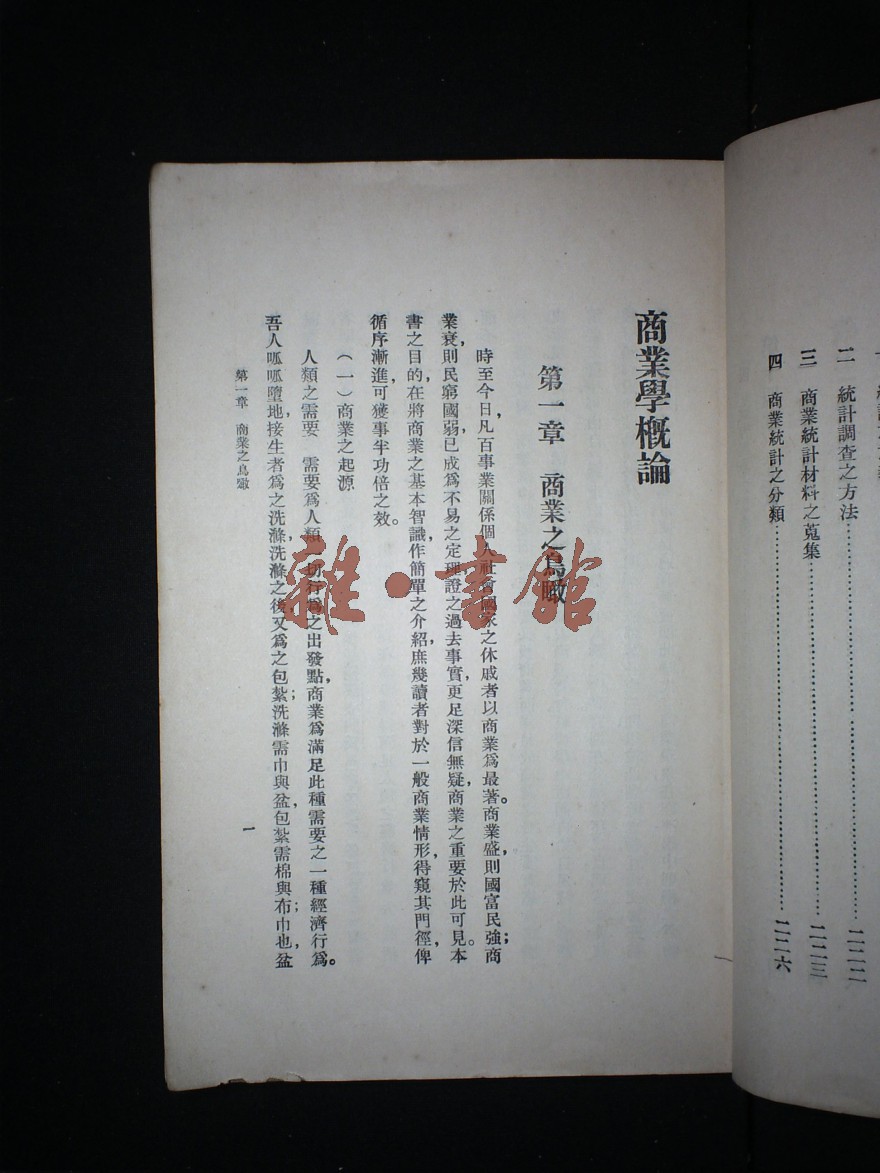 二　統計調查之方法……二二二
三　商業統計材料之蒐集……二二三
四　商業統計之分類……二二六
商業學概論
第一章　商業之鳥瞰
時至今日，凡百事業關係個人社會國家之休戚者以商業爲最著。商業盛，則國富民強；商
業衰，則民窮國弱，已成爲不易之定理證之過去事實，更足深信無疑，商業之重要於此可見。本
書之目的，在將商業之基本智識，作簡單之介紹，庶幾讀者對於一般商業情形，得窺其門徑，俾
循序漸進，可獲事半功倍之效。
（一）商業之起源
人類之需要　需要爲人類一切行爲之出發點，商業爲滿足此種需要之一種經濟行爲。
吾人呱呱墮地，接生者爲之洗滌，洗滌之後，又爲之包紮；洗滌需巾與盆，包紮需棉與布；巾也，盆
第一章　商業之鳥瞰
一
雜·書館